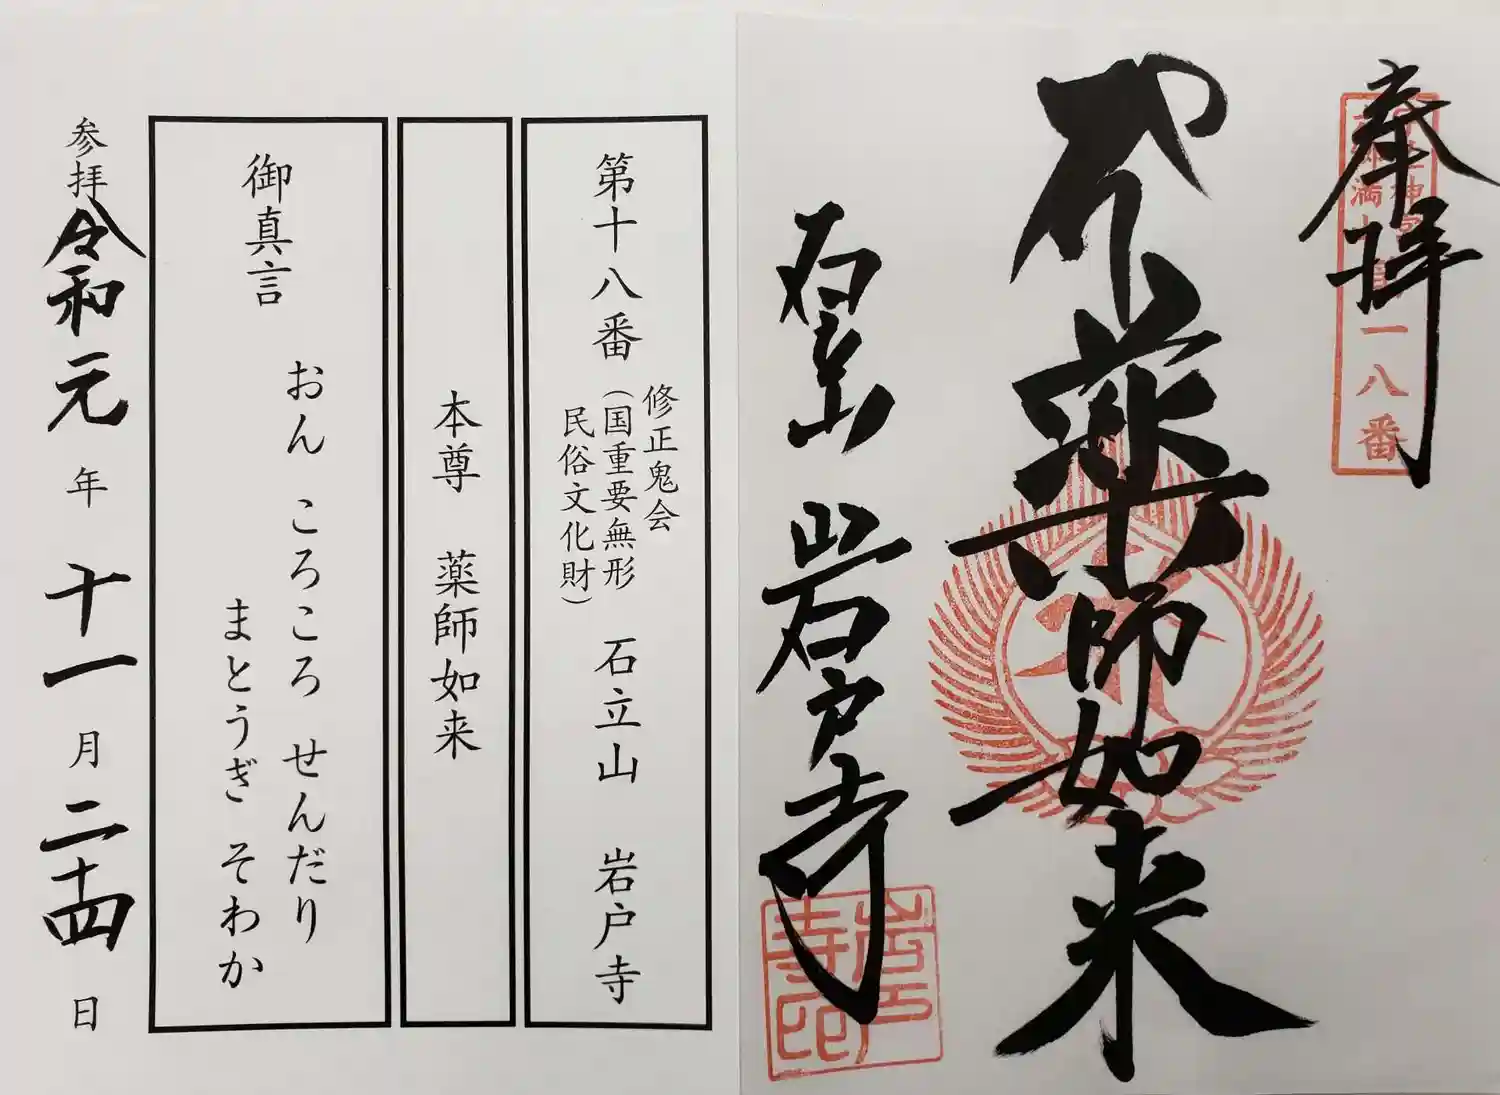 奉拝
一八番
薬師如来
石立山 岩戸寺
岩戸寺印
第十八番 修正鬼会（国重要無形民俗文化財） 石立山 岩戸寺
本尊 薬師如来
御真言 おん ころころ せんだり
まとうぎ そわか
参拝 令和元年 十一月 二十四日